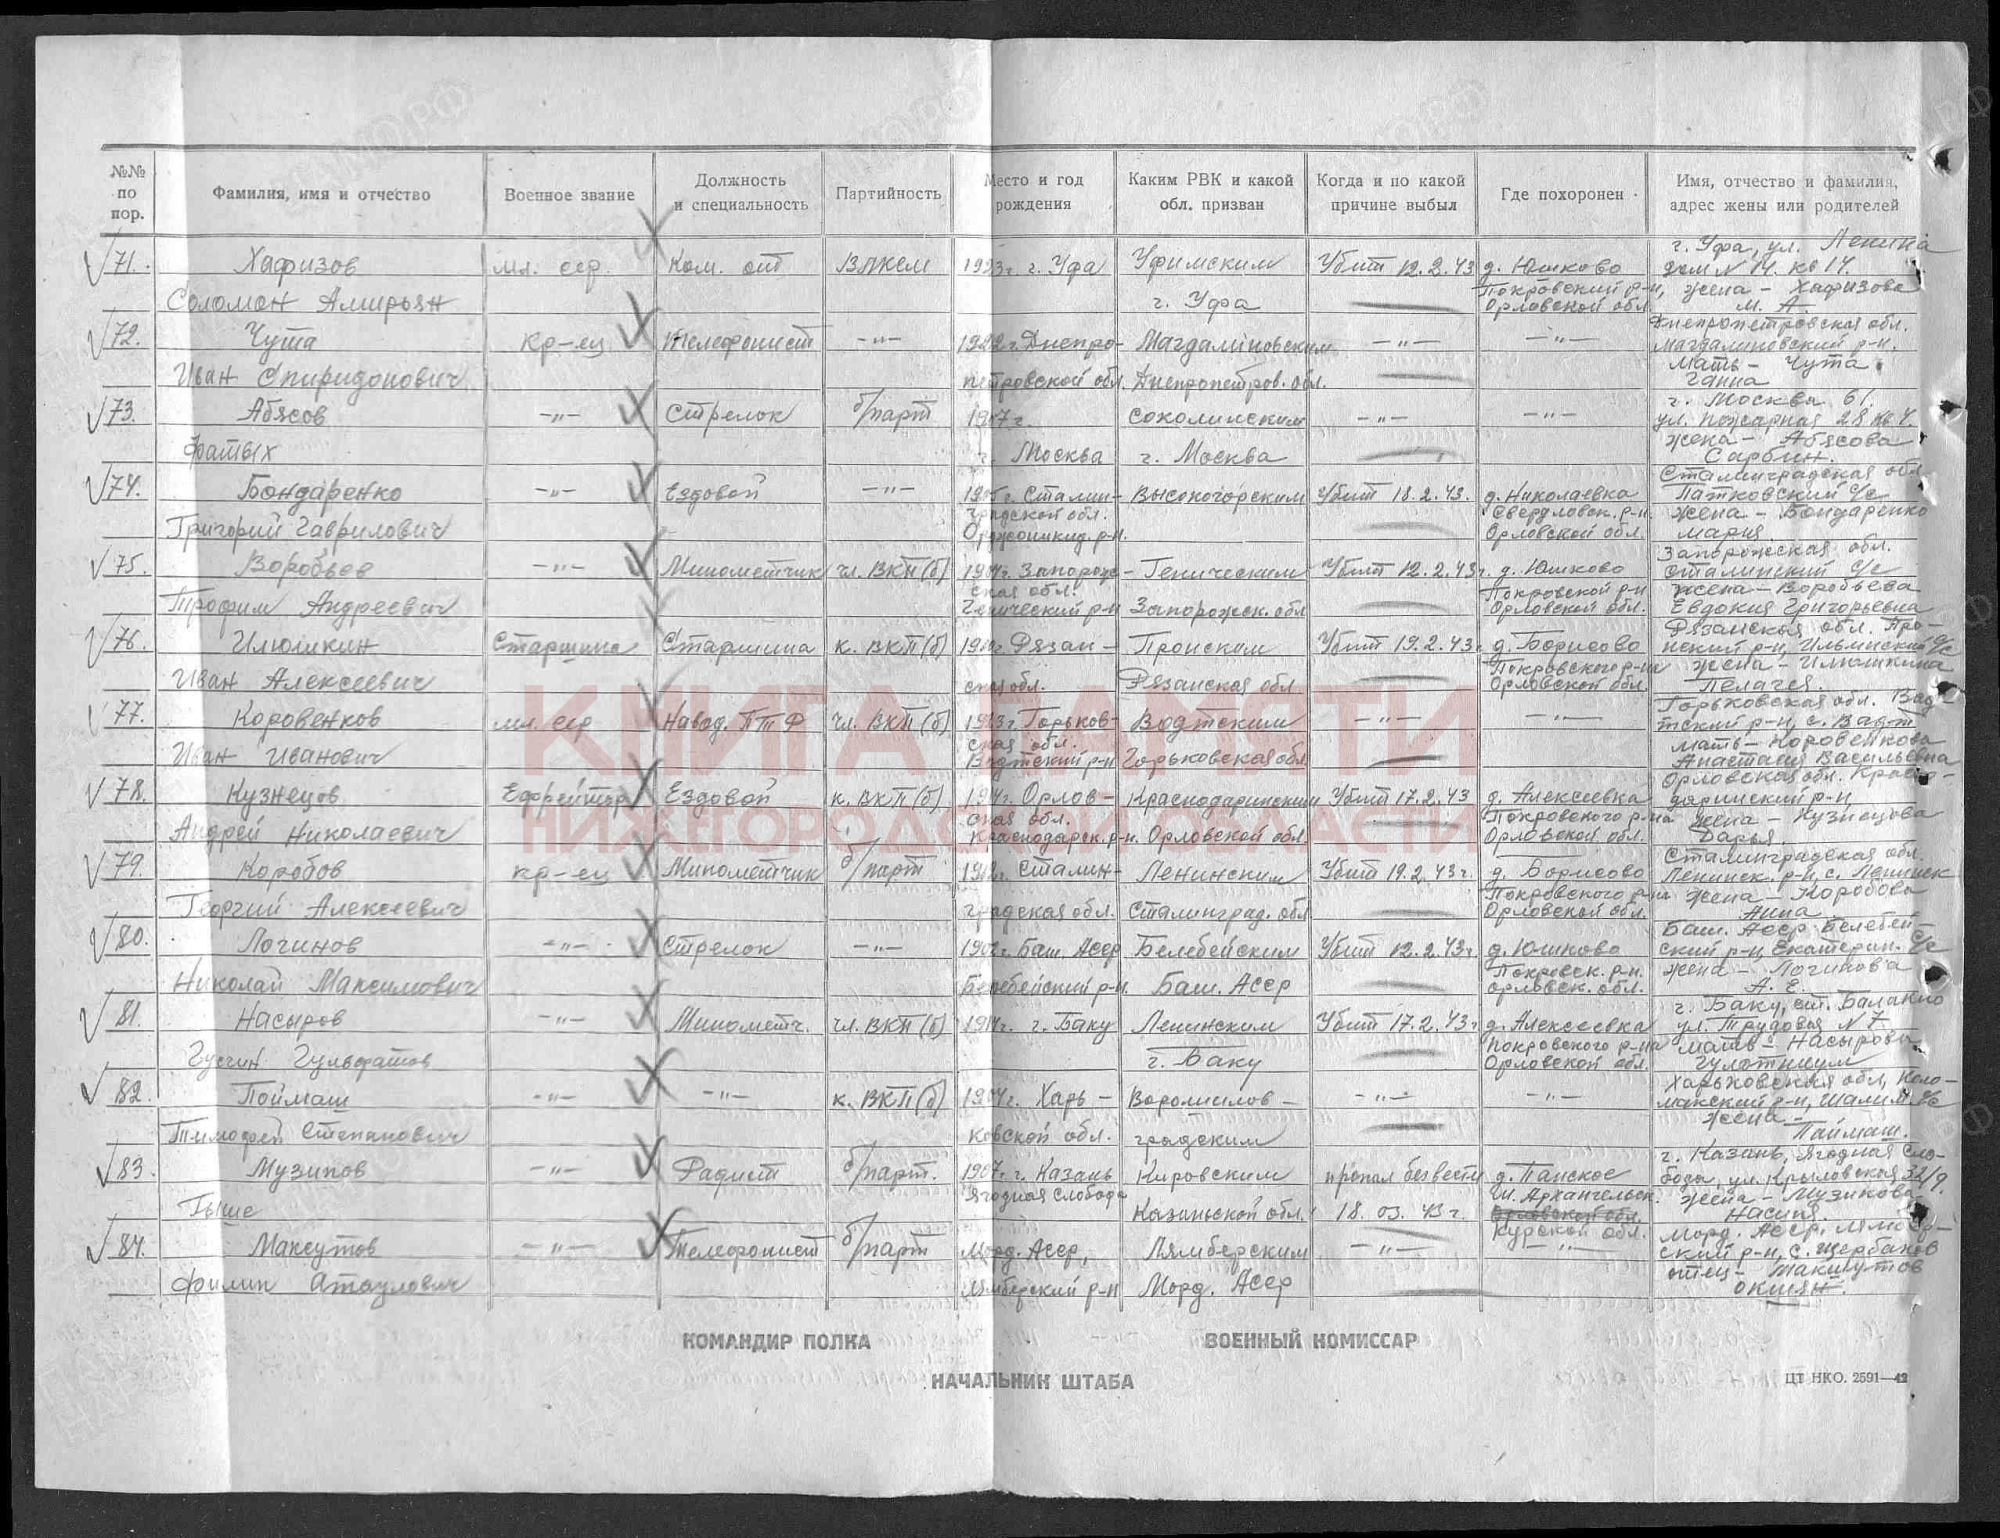 №№ по пор. Фамилия, имя и отчество Военное звание Должность и специальность Партийность Место и год рождения Каким РВК и какой обл. призван Когда и по какой причине выбыл Где похоронен Имя, отчество и фамилия, адрес жены или родителей
71. Хафизов мл. сер. Ком. отд ВЛКСМ 1923 г. г. Уфа Уфимским Убит 12.2.43 д. Юшково г. Уфа, ул. Ленина дом № 14. кв 14.
Соломон Амирьян г. Уфа Покровский р-н, Орловской обл. жена - Хафизова М. А.
72. Чута кр-ец Телефонист -"- 1922 г. Днепро- Магдалиновским -"- -"- Днепропетровская обл. Магдалиновский р-н.
Иван Спиридонович петровской обл. Днепропетров. обл. Мать - Чута Ганна
73. Абясов -"- Стрелок б/парт 1907 г. Соколинским -"- -"- г. Москва 61. ул. Пожарная 28 кв 4.
Фатых г. Москва г. Москва жена - Абясова Сарбин.
74. Бондаренко -"- Ездовой -"- 1905 г. Сталин- Высокогорским Убит 18.2.43. д. Николаевка Сталинградская обл. Патковский с/с
Григорий Гаврилович градской обл. Орджоникид. р-н. Свердловск. р-н. Орловской обл. жена - Бондаренко Мария
75. Воробьев -"- Минометчик чл. ВКП(б) 1904 г. Запорож- Геническим Убит 12.2.43 г. д. Юшково Запорожская обл. Сталинский с/с
Трофим Андреевич ская обл. Генический р-н Запорожск. обл Покровской р-н Орловской обл. жена - Воробьева Евдокия Григорьевна
76. Илюшкин Старшина Старшина к. ВКП(б) Рязан- Пронским Убит 19.2.43 г. д. Борисово Рязанская обл. Про- нский р-н, Ильинский с/с
Иван Алексеевич ская обл. Рязанская обл Покровского р-на Орловской обл. жена - Илюшкина Пелагея.
77. Коровенков мл. сер Навод. ПТР чл. ВКП(б) 1923 г. Горьков- Водтским -"- -"- Горьковская обл. Вад- тский р-н, с. Вадт
Иван Иванович ская обл. Водтский р-н Горьковская обл. мать - Коровенкова Анастасия Васильевна
78. Кузнецов Ефрейтор Ездовой к. ВКП(б) Орлов- Краснодаринским Убит 17.2.43 д. Алексеевка Орловская обл. Красно- даринский р-н,
Андрей Николаевич ская обл. Краснодарск. р-н. Орловской обл. Покровского р-на Орловской обл. жена - Кузнецова Дарья.
79. Коробов кр-ец Минометчик б/парт Сталин- Ленинским Убит 19.2.43 г. д. Борисово Сталинградская обл. Ленинск. р-н, с. Ленинск
Георгий Алексеевич градская обл. Сталинград. обл Покровского р-на Орловской обл. жена - Коробова Анна
80. Логинов -"- Стрелок -"- Баш. Асср Белебейским Убит 12.2.43 г. д. Юшково Баш. Асср Белебей- ский р-н, Екатерин. с/с
Николай Максимович Белебейский р-н. Баш. Асср Покровск. р-н. Орловск. обл. жена - Логинова А. Е.
81. Насыров -"- Минометч. чл. ВКП(б) г. Баку Ленинским Убит 17.2.43 г д. Алексеевка г. Баку, ст. ул. Трудовая № 7
Гусгин Гульфатов г. Баку Покровского р-на Орловской обл. мать - Насырова
82. Поймаш -"- -"- к. ВКП(б) 1904 г. Харь- Ворошилов- -"- -"- Харьковская обл, Коло- макский р-н,
Тимофей Степанович ковской обл. градским жена - Паймаш.
83. Музипов -"- Радист б/парт. 1907 г. г. Казань Кировским пропал безвести д. Панское г. Казань, Ягодная Сло- бода, ул. Крыловская 32/9.
Гыше Ягодная слобода Казаньской обл. 18.03.43 г. М. Архангельск. Орловской обл. Курской обл. жена - Музикова Насиня.
84. Максутов -"- Телефонист б/парт Морд. Асср, Лямберским -"- -"- Морд. Асср, Лямбер- ский р-н, с. Щербаков
Филип Атаулович Лямберский р-н Морд. Асср отец - Макшутов Окшян.
КОМАНДИР ПОЛКА ВОЕННЫЙ КОМИССАР
НАЧАЛЬНИК ШТАБА
ЦТ НКО. 2591—42
КНИГА ПАМЯТИ
НИЖЕГОРОДСКОЙ ОБЛАСТИ